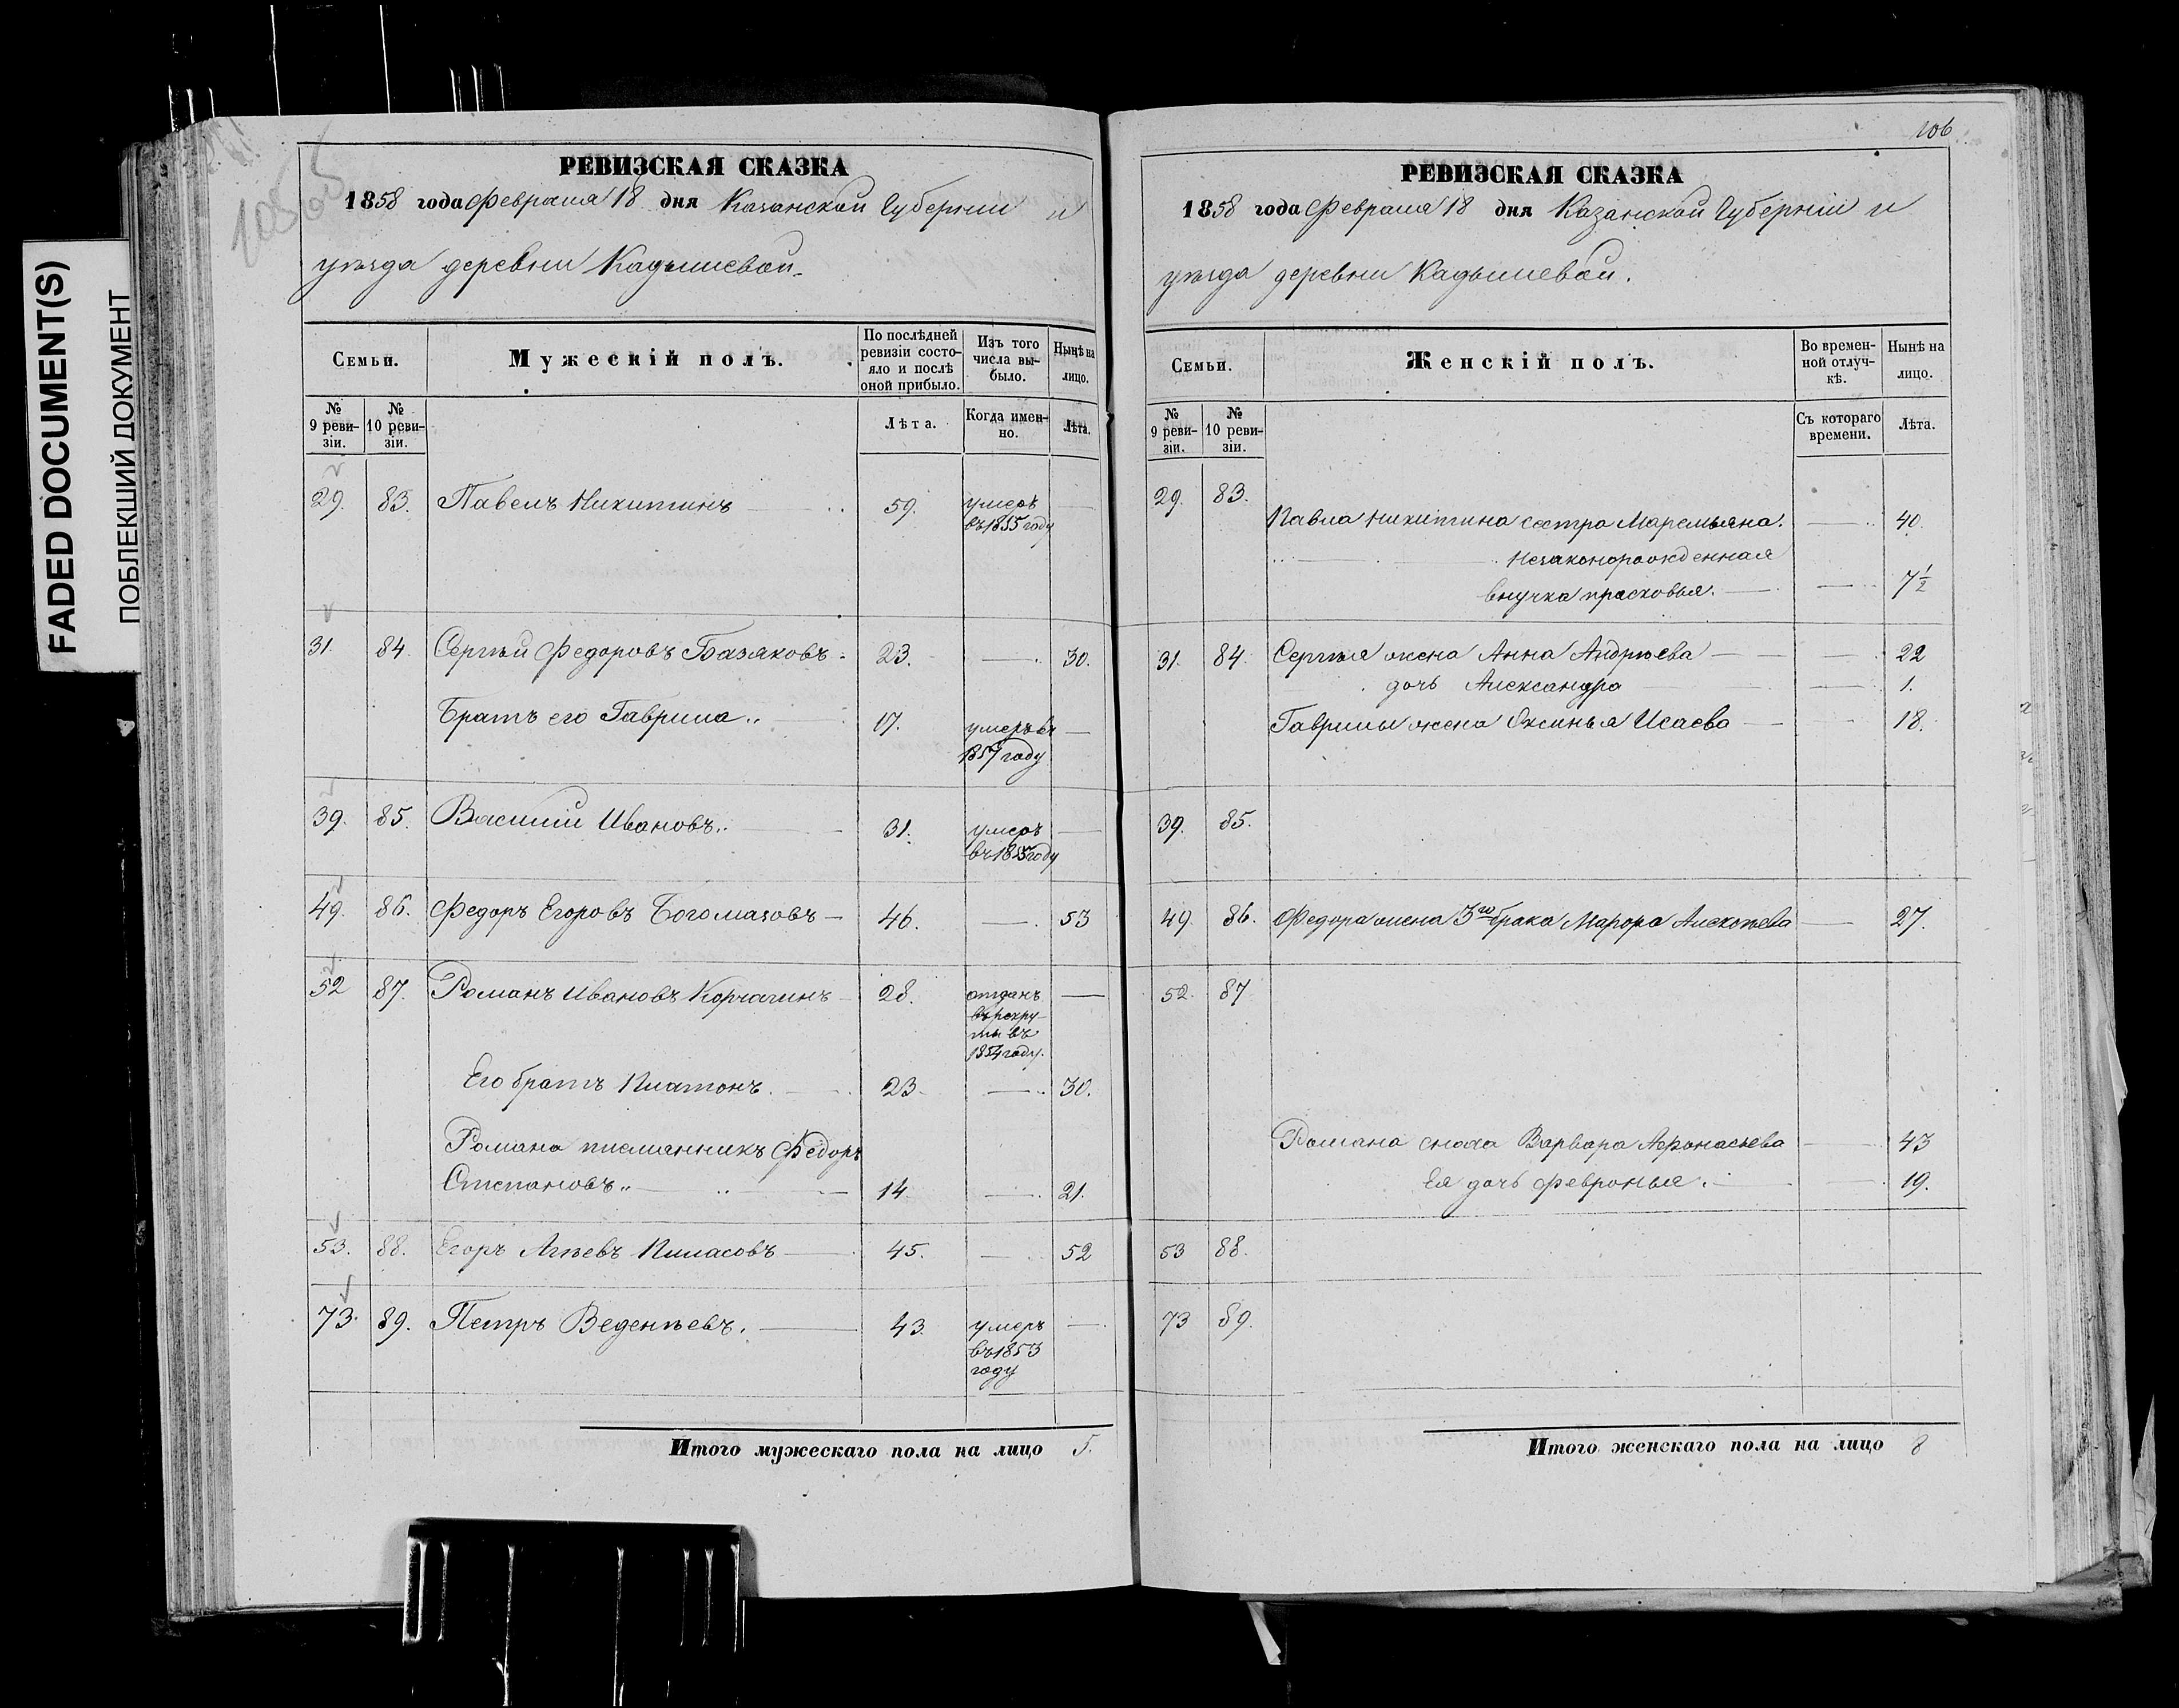 FADED DOCUMENT(S)
ПОБЛЕКШИЙ ДОКУМЕНТ
РЕВИЗСКАЯ СКАЗКА
1858 года Февраля 18 дня Казанской Губерніи и
уѣзда деревни Кадышевой.
Семьи.
Мужескій полъ.
По послѣдней ревизіи состояло и послѣ оной прибыло.
Изъ того числа вы-было.
Нынѣ на лицо.
№ 9 реви-зіи.
№ 10 реви-зіи.
Лѣта.
Когда имен-но.
Лѣта.
29. 83. Павелъ Никитинъ 59. умеръ въ 1855 году
31. 84. Сергѣй Федоровъ Базяковъ 23. 30.
Братъ его Гаврила 17. умеръ въ 1857 году
39. 85. Василій Ивановъ 31. умеръ въ 1855 году
49. 86. Федоръ Егоровъ Богомазовъ 46. 53
52 87. Романъ Ивановъ Корчагинъ 28. отданъ въ рекру-ты въ 1854 году.
Его братъ Платонъ. 23. 30.
Романа племянникъ Федоръ
Степановъ 14 21.
53. 88. Егоръ Агѣевъ 45. 52
73. 89. Петръ Веденѣевъ. 43. умеръ въ 1853 году
Итого мужескаго пола на лицо 5.
106
РЕВИЗСКАЯ СКАЗКА
1858 года Февраля 18 дня Казанской Губерніи и
уѣзда деревни Кадышевой.
Семьи.
Женскій полъ.
Во времен-ной отлуч-кѣ.
Нынѣ на лицо.
№ 9 реви-зіи.
№ 10 реви-зіи.
Съ котораго времени.
Лѣта.
29. 83.
Павла Никитина сестра Маремьяна. 40.
Незаконорожденная
внучка прасковья. 7½
31. 84. Сергѣя жена Анна Андрѣева 22
дочь Александра 1.
Гаврилы жена Оксинья Исаева 18.
39. 85.
49. 86. Федора жена 3го брака Марфа Алексѣева 27.
52. 87
Романа сноха Варвара Афонасьева 43
Ея дочь Февронья. 19.
53 88.
73 89.
Итого женскаго пола на лицо 8